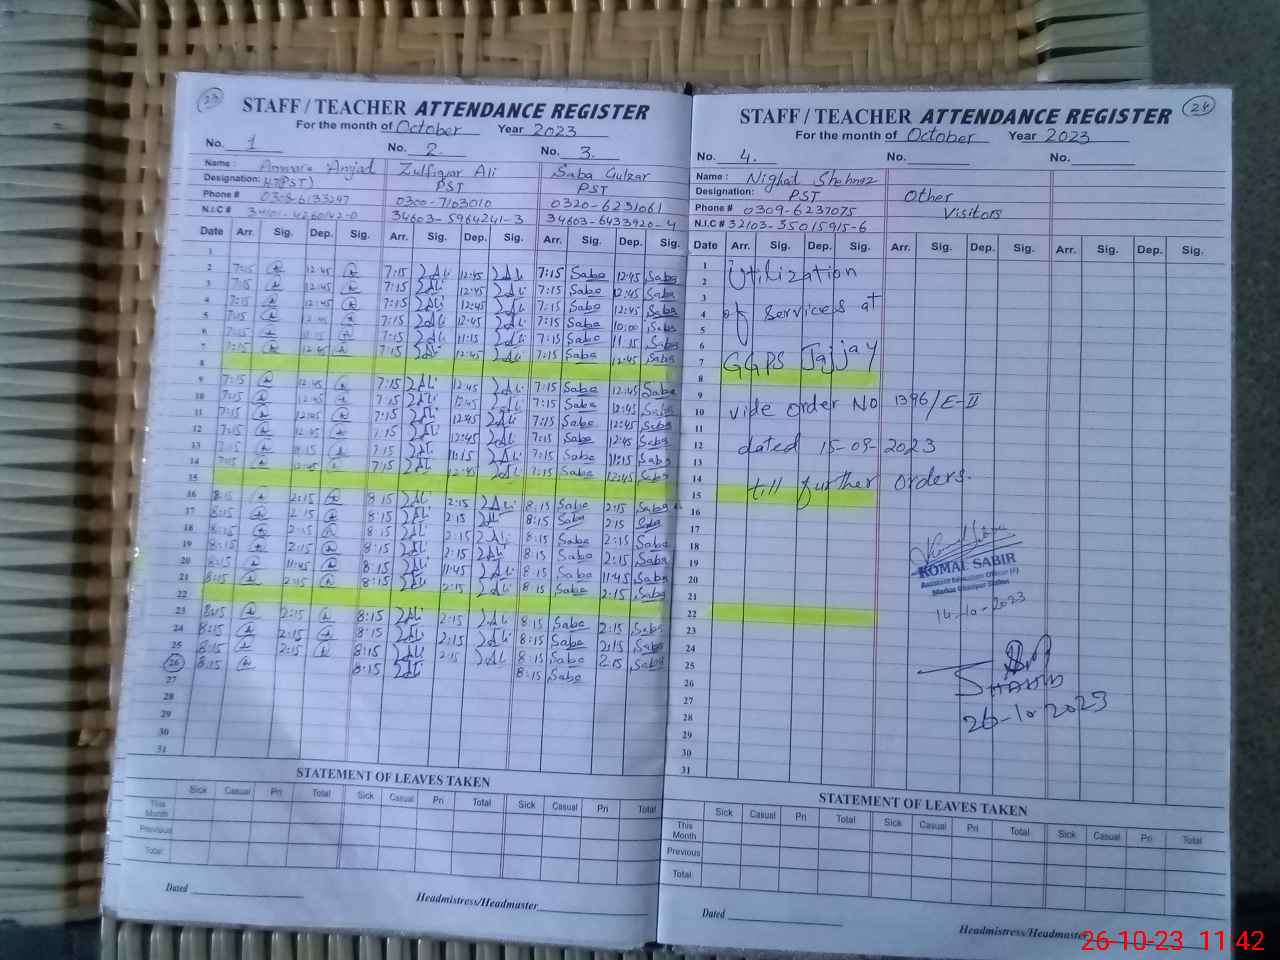 23
STAFF / TEACHER ATTENDANCE REGISTER
For the month of October Year 2023
No. 1 No. 2. No. 3.
Name : Ammara Amjad Zulfiqar Ali Saba Gulzar
Designation: HT(PST) PST PST
Phone # 0308-6133247 0300-7103010 0320-6231061
N.I.C # 34603-5964241-3 34603-6433920-4
Date Arr. Sig. Dep. Sig. Arr. Sig. Dep. Sig. Arr. Sig. Dep. Sig.
1
2 7:15 12:45 7:15 12:45 7:15 Saba 12:45 Saba
3 7:15 12:45 7:15 12:45 7:15 Saba 12:45 Saba
4 7:15 12:45 7:15 12:45 7:15 Saba 12:45 Saba
5 7:15 12:45 7:15 12:45 7:15 Saba 10:00 Saba
6 7:15 11:15 7:15 11:15 7:15 Saba 11:15 Saba
7 7:15 12:45 7:15 12:45 7:15 Saba 12:45 Saba
8
9 7:15 12:45 7:15 12:45 7:15 Saba 12:45 Saba
10 7:15 12:45 7:15 12:45 7:15 Saba 12:45 Saba
11 7:15 12:45 7:15 12:45 7:15 Saba 12:45 Saba
12 7:15 12:45 7:15 12:45 7:15 Saba 12:45 Saba
13 7:15 11:15 7:15 11:15 7:15 Saba 11:15 Saba
14 7:15 12:45 7:15 12:45 7:15 Saba 12:45 Saba
15
16 8:15 2:15 8:15 2:15 8:15 Saba 2:15 Saba
17 8:15 2:15 8:15 2:15 8:15 Saba 2:15 Saba
18 8:15 2:15 8:15 2:15 8:15 Saba 2:15 Saba
19 8:15 2:15 8:15 2:15 8:15 Saba 2:15 Saba
20 8:15 11:45 8:15 11:45 8:15 Saba 11:45 Saba
21 8:15 2:15 8:15 2:15 8:15 Saba 2:15 Saba
22
23 8:15 2:15 8:15 2:15 8:15 Saba 2:15 Saba
24 8:15 2:15 8:15 2:15 8:15 Saba 2:15 Saba
25 8:15 2:15 8:15 2:15 8:15 Saba 2:15 Saba
26 8:15 8:15 8:15 Saba
27
28
29
30
31
STATEMENT OF LEAVES TAKEN
Sick Casual Pri Total Sick Casual Pri Total Sick Casual Pri Total
This Month
Previous
Total
Dated
Headmistress/Headmaster
24
STAFF / TEACHER ATTENDANCE REGISTER
For the month of October Year 2023
No. 4. No. No.
Name : Nighat Shehnaz
Designation: PST Other
Phone # 0309-6237075 Visitors
N.I.C # 32103-3501595-6
Date Arr. Sig. Dep. Sig. Arr. Sig. Dep. Sig. Arr. Sig. Dep. Sig.
1 Utilization
2
3
4 of services at
5
6
7 GGPS Jajjay
8
9
10 vide order No 1396/E-II
11
12 dated 15-09-2023
13
14
15 till further orders.
16
17
18
19 KOMAL SABIR
20 Assistant Education Officer (F)
21
22 14-10-2023
23
24
25
26
27
28 26-10-2023
29
30
31
STATEMENT OF LEAVES TAKEN
Sick Casual Pri Total Sick Casual Pri Total Sick Casual Pri Total
This Month
Previous
Total
Dated
Headmistress/Headmaster
26-10-23 11:42